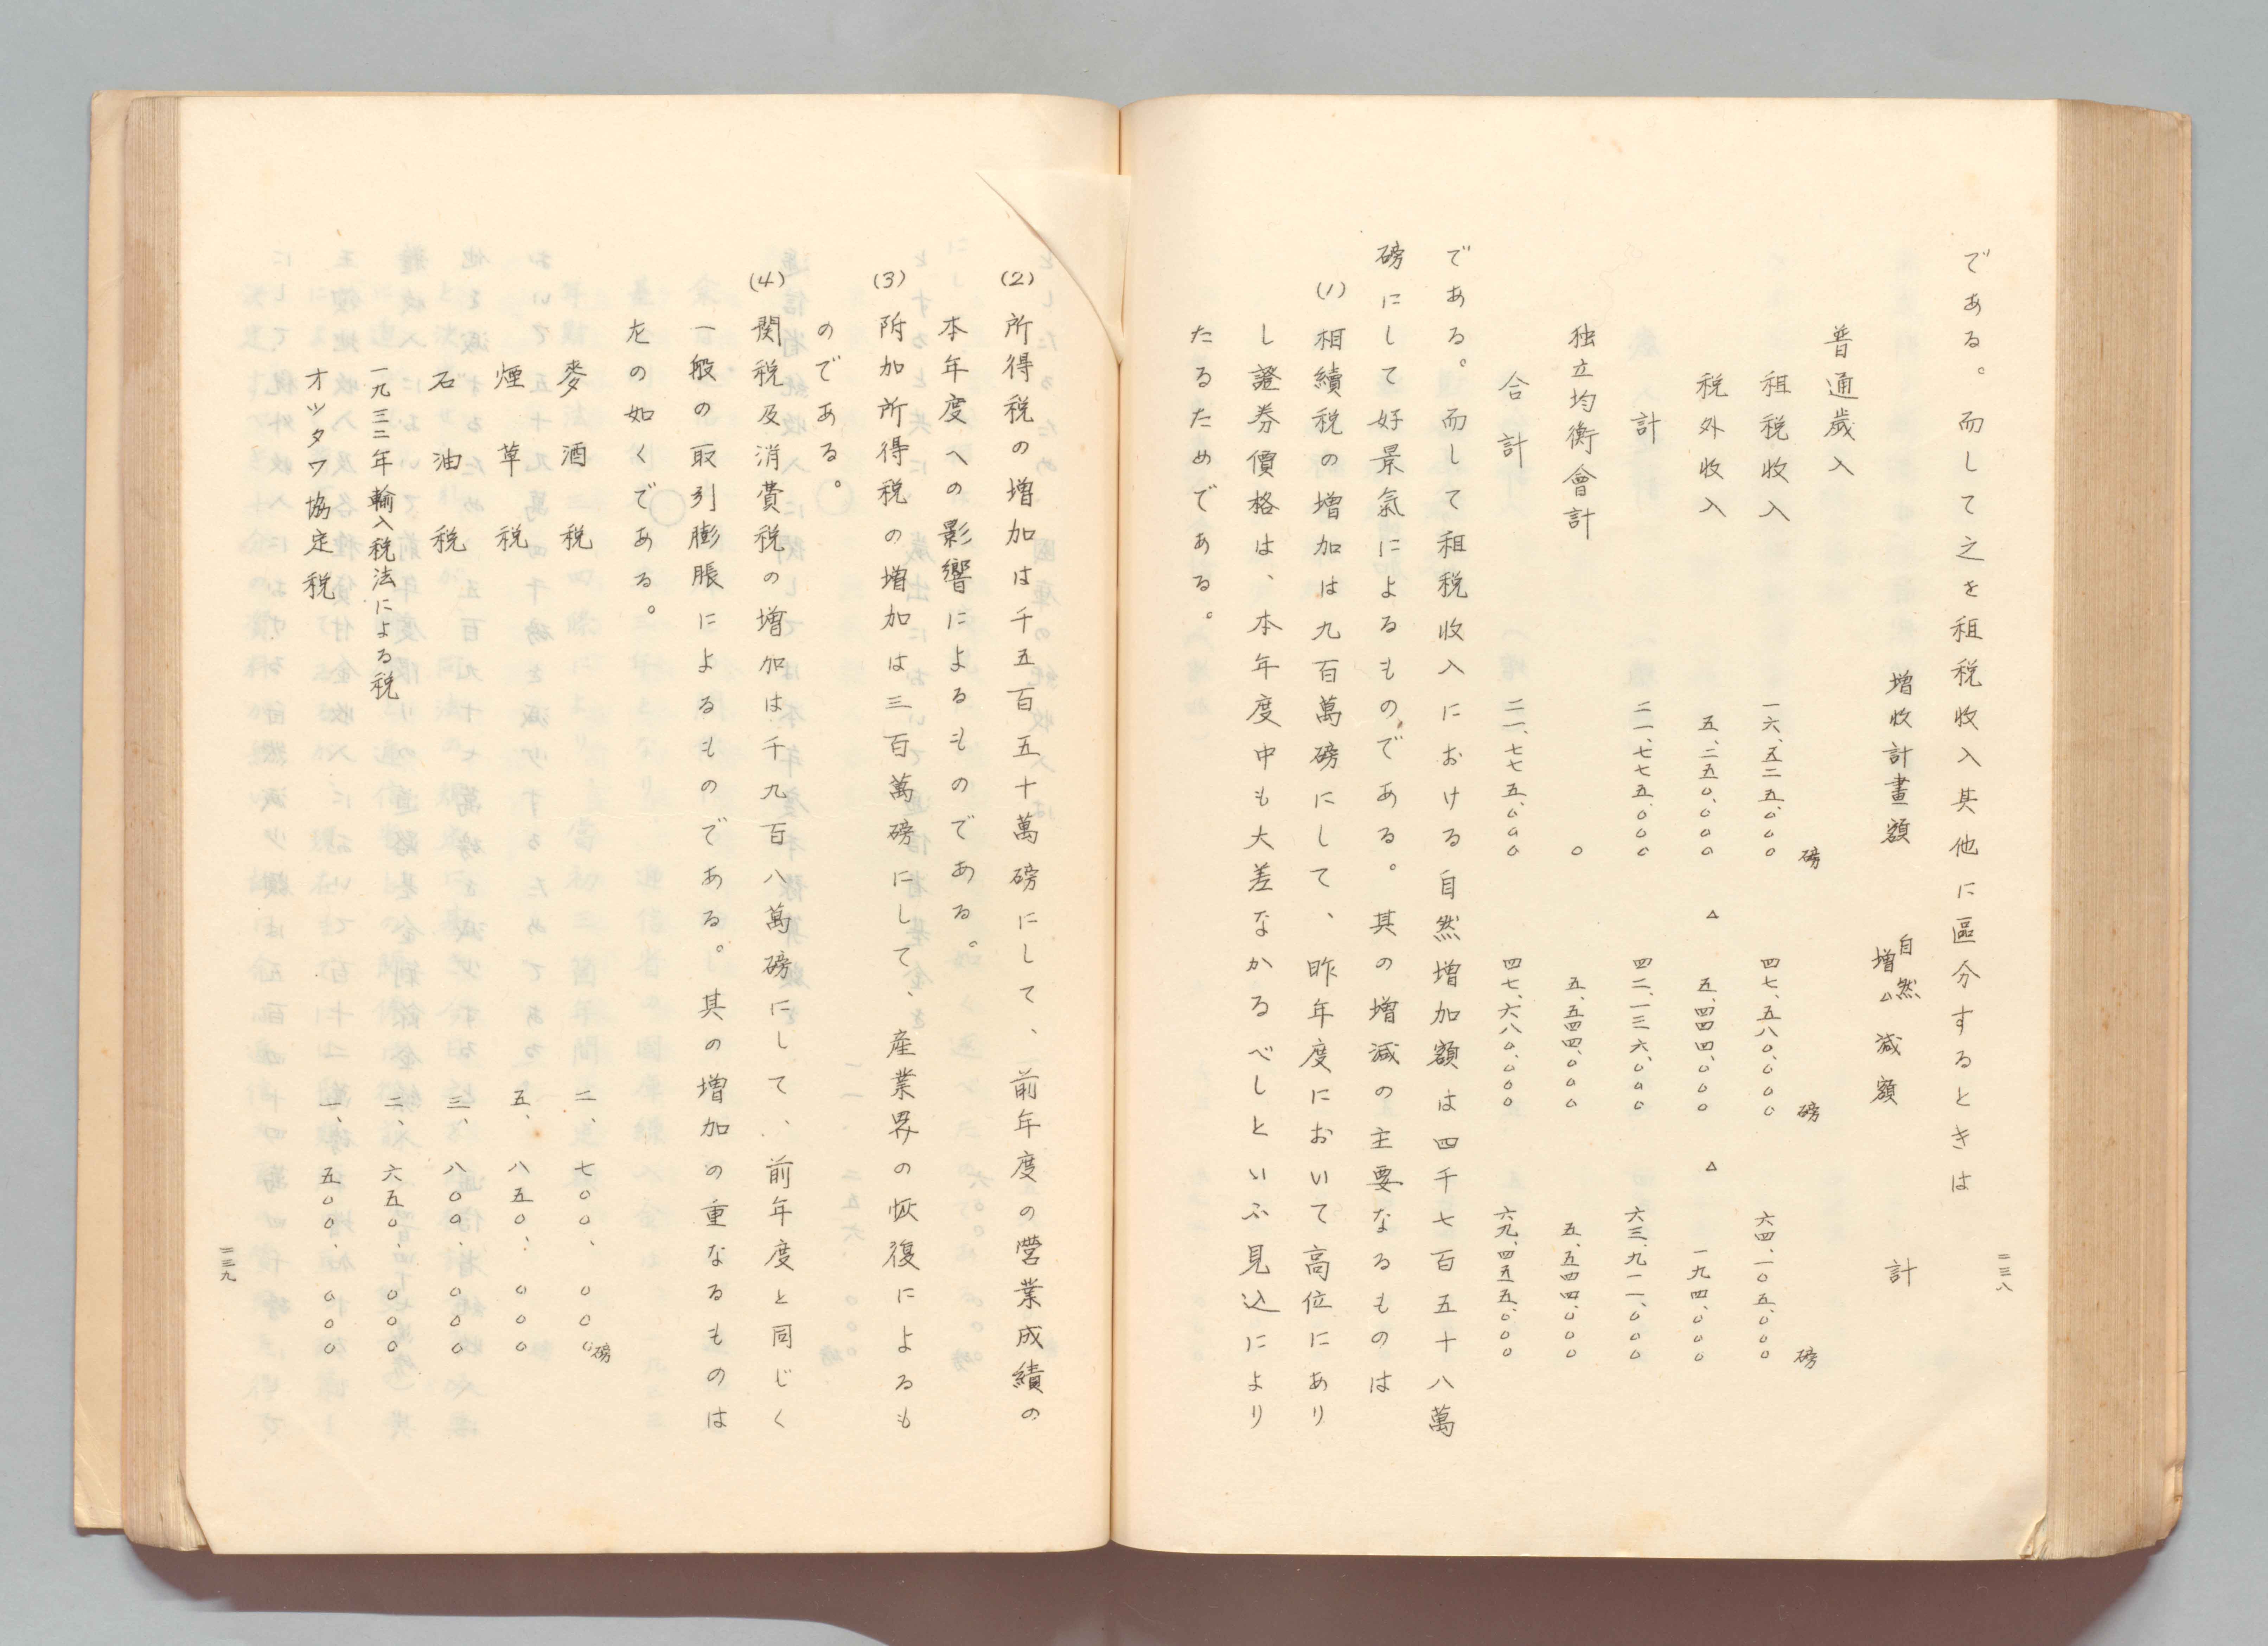 二三八
である。而して之を租税收入其他に區分するときは
增收計畫額 自然增△減額 計
普通歲入
磅 磅 磅
租税收入 一六、五二五、〇〇〇 四七、五八〇、〇〇〇 六四、一〇五、〇〇〇
税外收入 五、二五〇、〇〇〇 △ 五、四四四、〇〇〇 △ 一九四、〇〇〇
計 二一、七七五、〇〇〇 四二、一三六、〇〇〇 六三、九一一、〇〇〇
独立均衡會計 〇 五、五四四、〇〇〇 五、五四四、〇〇〇
合計 二一、七七五、〇〇〇 四七、六八〇、〇〇〇 六九、四五五、〇〇〇
である。而して租税收入における自然增加額は四千七百五十八萬
磅にして好景氣によるものである。其の增減の主要なるものは
(1) 相續税の增加は九百萬磅にして、昨年度において高位にあり
し證券價格は、本年度中も大差なかるべしといふ見込により
たるためである。
(2) 所得税の增加は千五百五十萬磅にして、前年度の營業成績の
本年度への影響によるものである。
(3) 附加所得税の增加は三百萬磅にして、産業界の恢復によるも
のである。
(4) 関税及消費税の增加は千九百八萬磅にして、前年度と同じく
一般の取引膨脹によるものである。其の增加の重なるものは
左の如くである。
麥酒税 二、七〇〇、〇〇〇磅
煙草税 五、八五〇、〇〇〇
石油税 三、八〇〇、〇〇〇
一九三二年輸入税法による税 二、六五〇、〇〇〇
オツタワ協定税 一、五〇〇、〇〇〇
二三九